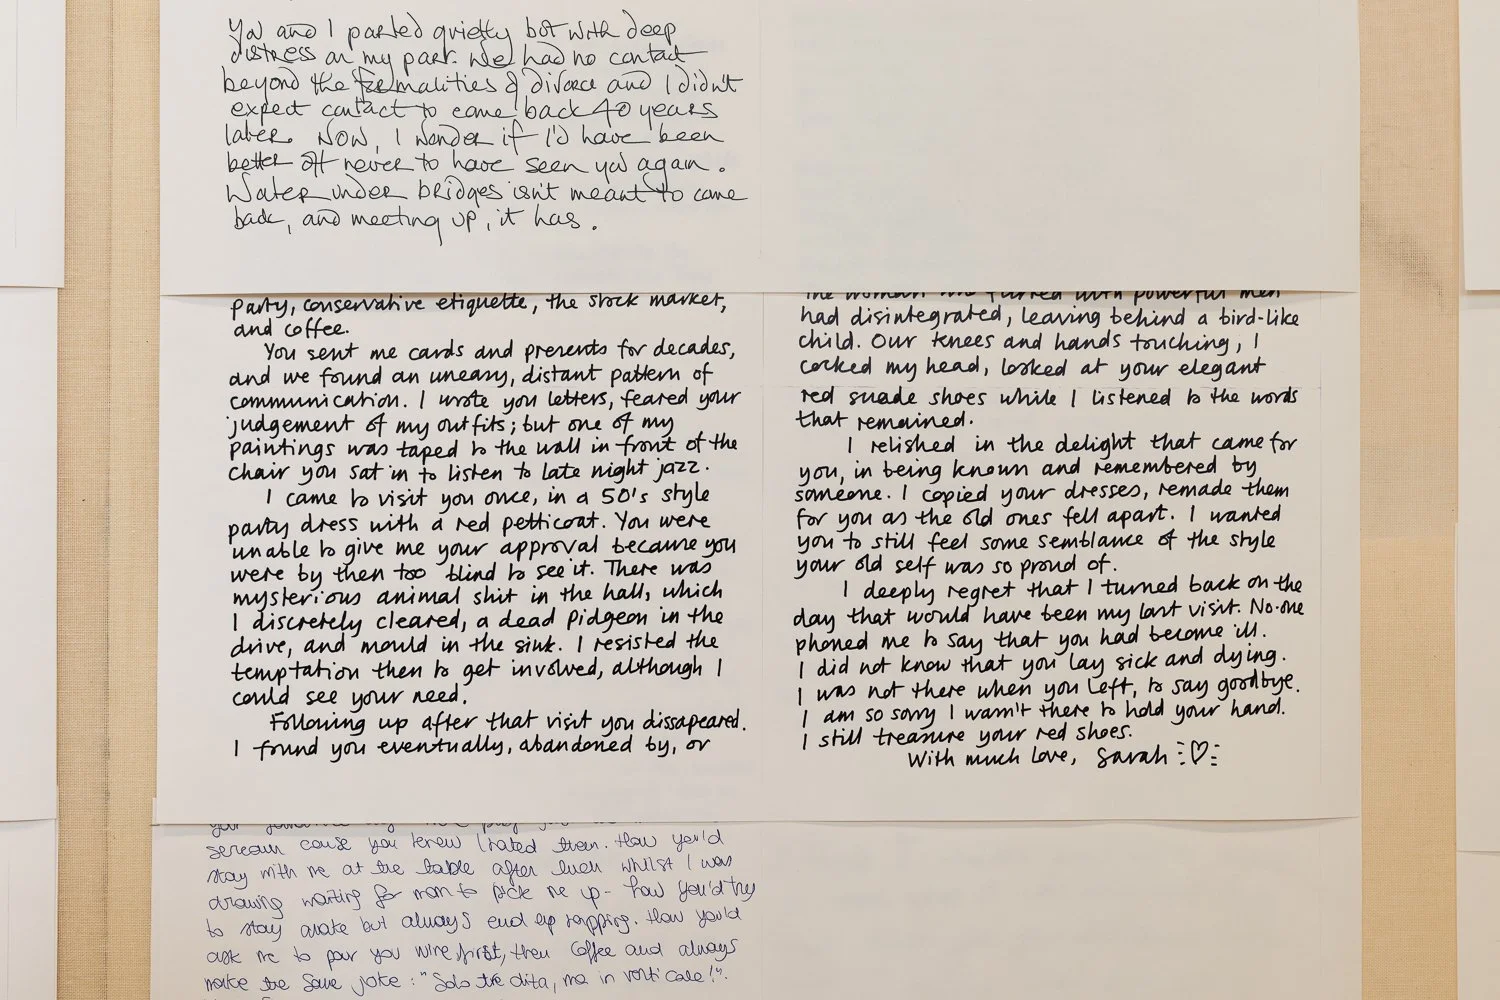 You and I parted quietly but with deep
distress on my part. We had no contact
beyond the formalities of divorce and I didn't
expect contact to come back 40 years
later. Now, I wonder if I'd have been
better off never to have seen you again.
Water under bridges isn't meant to come
back, and meeting up, it has.
party, conservative etiquette, the stock market,
and coffee.
You sent me cards and presents for decades,
and we found an uneasy, distant pattern of
communication. I wrote you letters, feared your
judgement of my outfits; but one of my
paintings was taped to the wall in front of the
chair you sat in to listen to late night jazz.
I came to visit you once, in a 50's style
party dress with a red petticoat. You were
unable to give me your approval because you
were by then too blind to see it. There was
mysterious animal shit in the hall, which
I discretely cleared, a dead pidgeon in the
drive, and mould in the sink. I resisted the
temptation then to get involved, although I
could see your need.
Following up after that visit you dissapeared.
I found you eventually, abandoned by, or
the woman who flirted with powerful men
had disintegrated, leaving behind a bird-like
child. Our knees and hands touching, I
cocked my head, looked at your elegant
red suade shoes while I listened to the words
that remained.
I relished in the delight that came for
you, in being known and remembered by
someone. I copied your dresses, remade them
for you as the old ones fell apart. I wanted
you to still feel some semblance of the style
your old self was so proud of.
I deeply regret that I turned back on the
day that would have been my last visit. No-one
phoned me to say that you had become ill.
I did not know that you lay sick and dying.
I was not there when you left, to say goodbye.
I am so sorry I wasn't there to hold your hand.
I still treasure your red shoes.
With much love, Sarah ♡
scream cause you knew I hated them. How you'd
stay with me at the table after lunch whilst I was
drawing waiting for mom to pick me up - how you'd try
to stay awake but always end up napping. How you'd
ask me to pour you wine first, then coffee and always
make the same joke: "Solo tre dita, ma in verticale!".